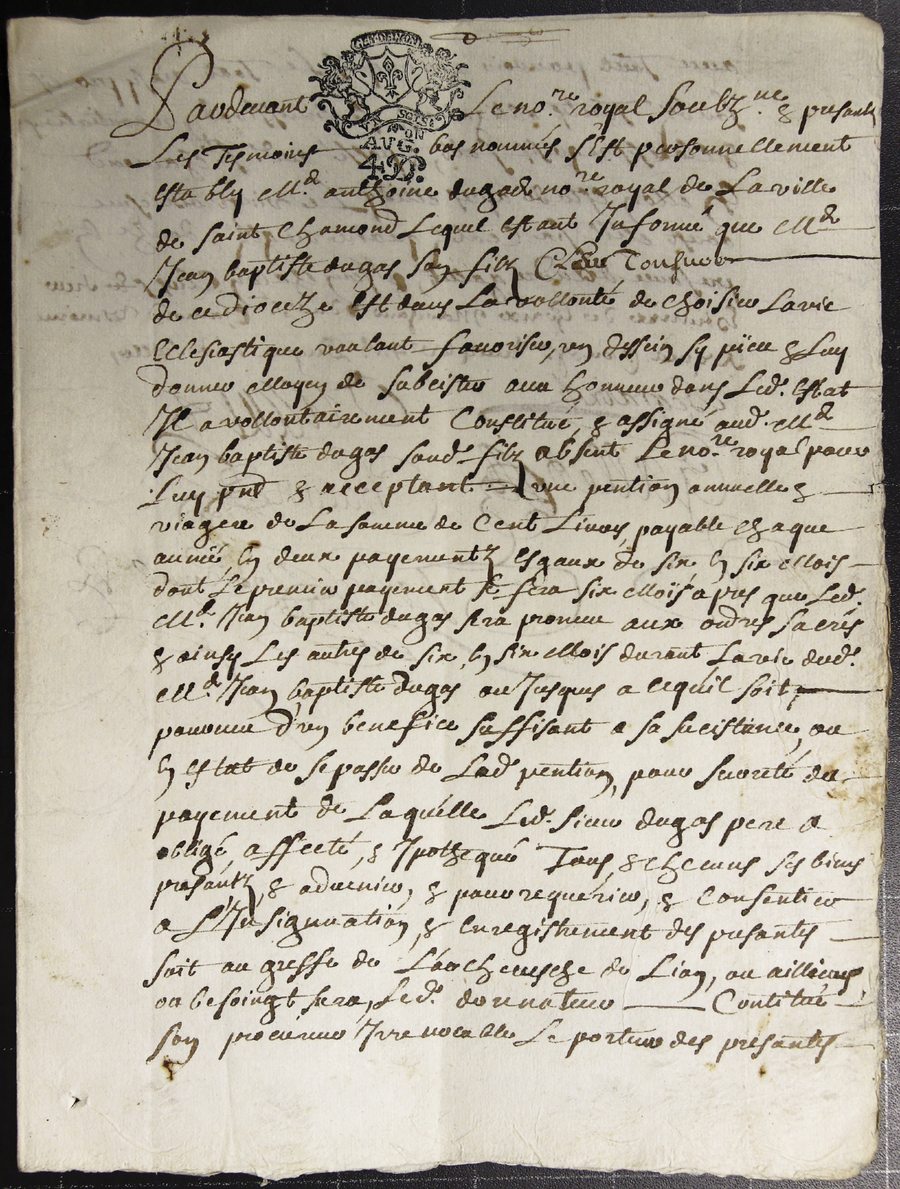 GEN. DE LYON
AUG.
4 D.
Pardevant Le no.re royal soubz.ne & presants
Les Tesmoins bas nommés s'est personnellement
estably M.e anthoine dugas no.re royal de La ville
de Saint Chamond Lequel estant Informé que M.e
Jean baptiste dugas son filz Clerc Tonsuré
de ce dioceze est dans La vollonté de choisir La vie
Eclesiastique voulant favoriser, un dessein sy pieu & Luy
donner Moyen de subcister avec honneur dans Led. estat
Il a vollontairement Constitué, & assigné aud. M.e
Jean baptiste dugas sond. filz absent Le no.re royal pour
Luy pnt & acceptant une pention annuelle &
viagere de La somme de Cent Livres, payable chaque
année, en deux payementz esgaux de six en six Mois
dont Le premier payement se fera six Mois apres que Led.
M.e Jean baptiste dugas sera promeu aux ordres sacrés
& ainsy Les autres de six, en six Mois durant La vie dud.
M.e Jean baptiste dugas ou Jusques a ce qu'il soit
pourveu d'un benefice suffisant a sa sucistance, ou
en estat de se passer de Lad. pention, pour sureté du
payement de Laquelle Led. sieur dugas pere a
obligé, affecté, & Ipothequé Tous, & checuns ses biens
presantz, & advenir, & pour requérir, & Consentir
a L'Insignuation, & Enregistrement des presantes
soit au greffe de L'archevesche de Lion, ou aillieurs
ou besoingt sera, Led. donnateur Contitué
son procureur Irrevocable Le porteur des presantes